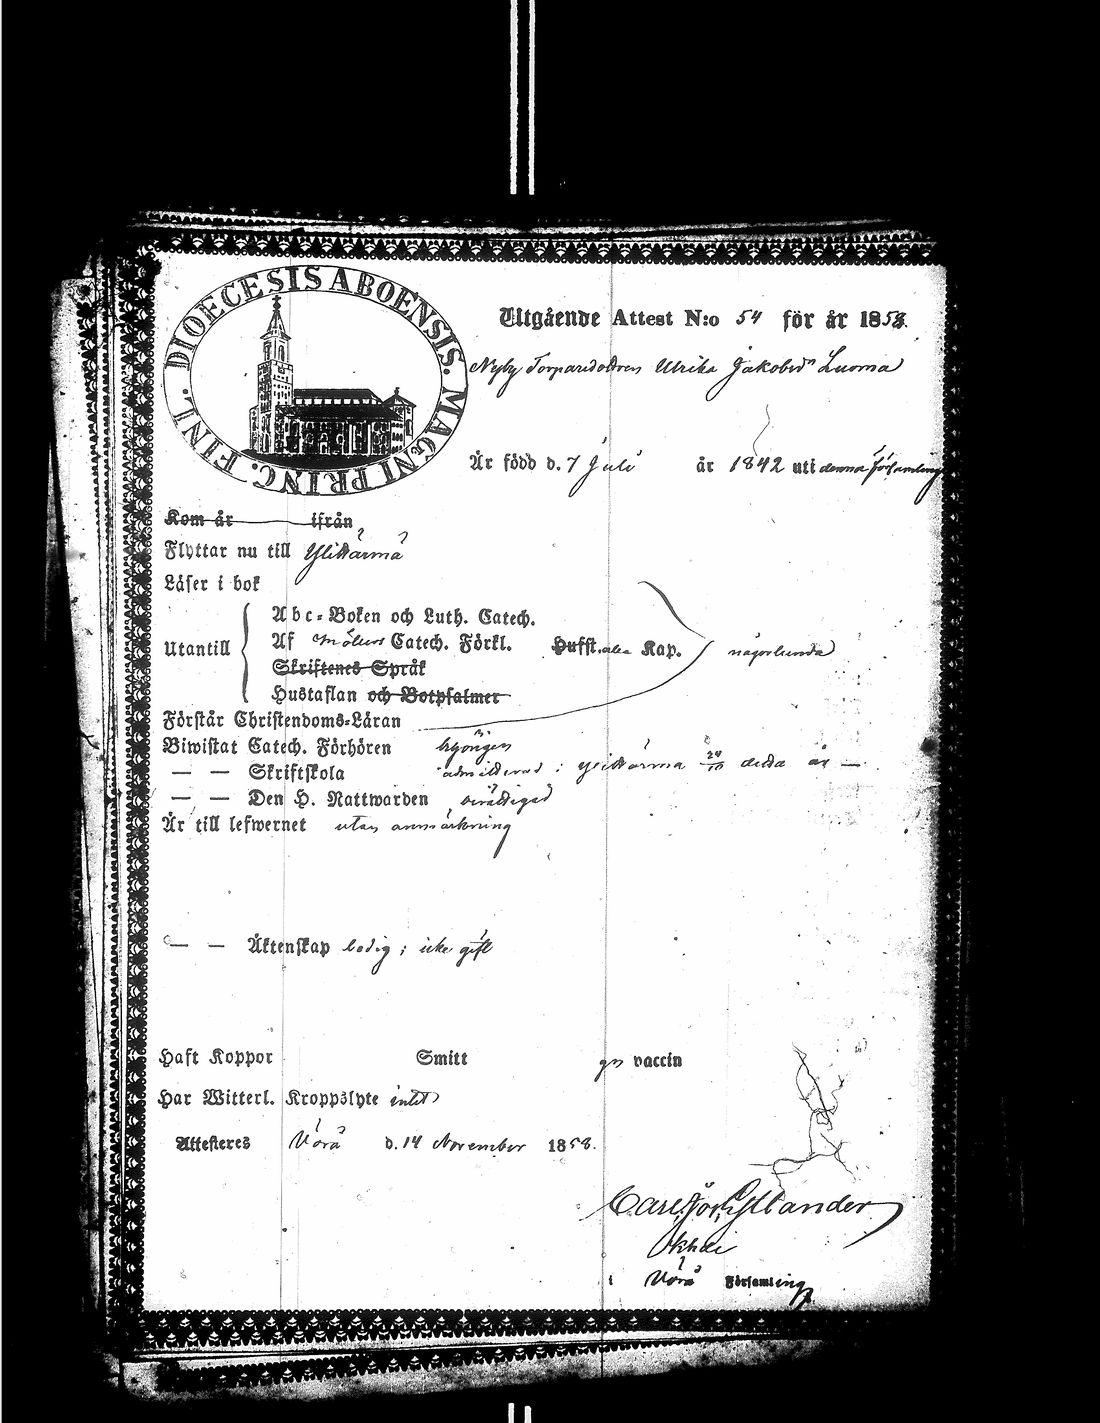 DIOECESIS ABOENSIS. MAGNI PRINC. FINL.
Utgående Attest N:o 54 för år 1858.
Nyby Torparedottren Ulrika Jakobsd:r Luoma
Är född d. 7 Juli år 1842 uti denna församling
Kom år ifrån
Flyttar nu till Ylikärmä
Läser i bok
Utantill
Abc-Boken och Luth. Catech.
Af Catech. Förkl. Husst. Kap. någorlunda
Skriftenes Språk
Hustaflan och Botpsalmer
Förstår Christendoms-Läran
Biwistat Catech. Förhören
— — Skriftskola admitterad i Ylikärmä 24/10 detta år —
— — Den H. Nattwarden
Är till lefwernet utan anmärkning
— — Äktenskap ledig; icke gift
Haft Koppor Smitt vaccin
Har Witterl. Kroppslyte intet
Attesteres Vörå d. 14 November 1858.
Carl Gyllander
i Vörå Församling